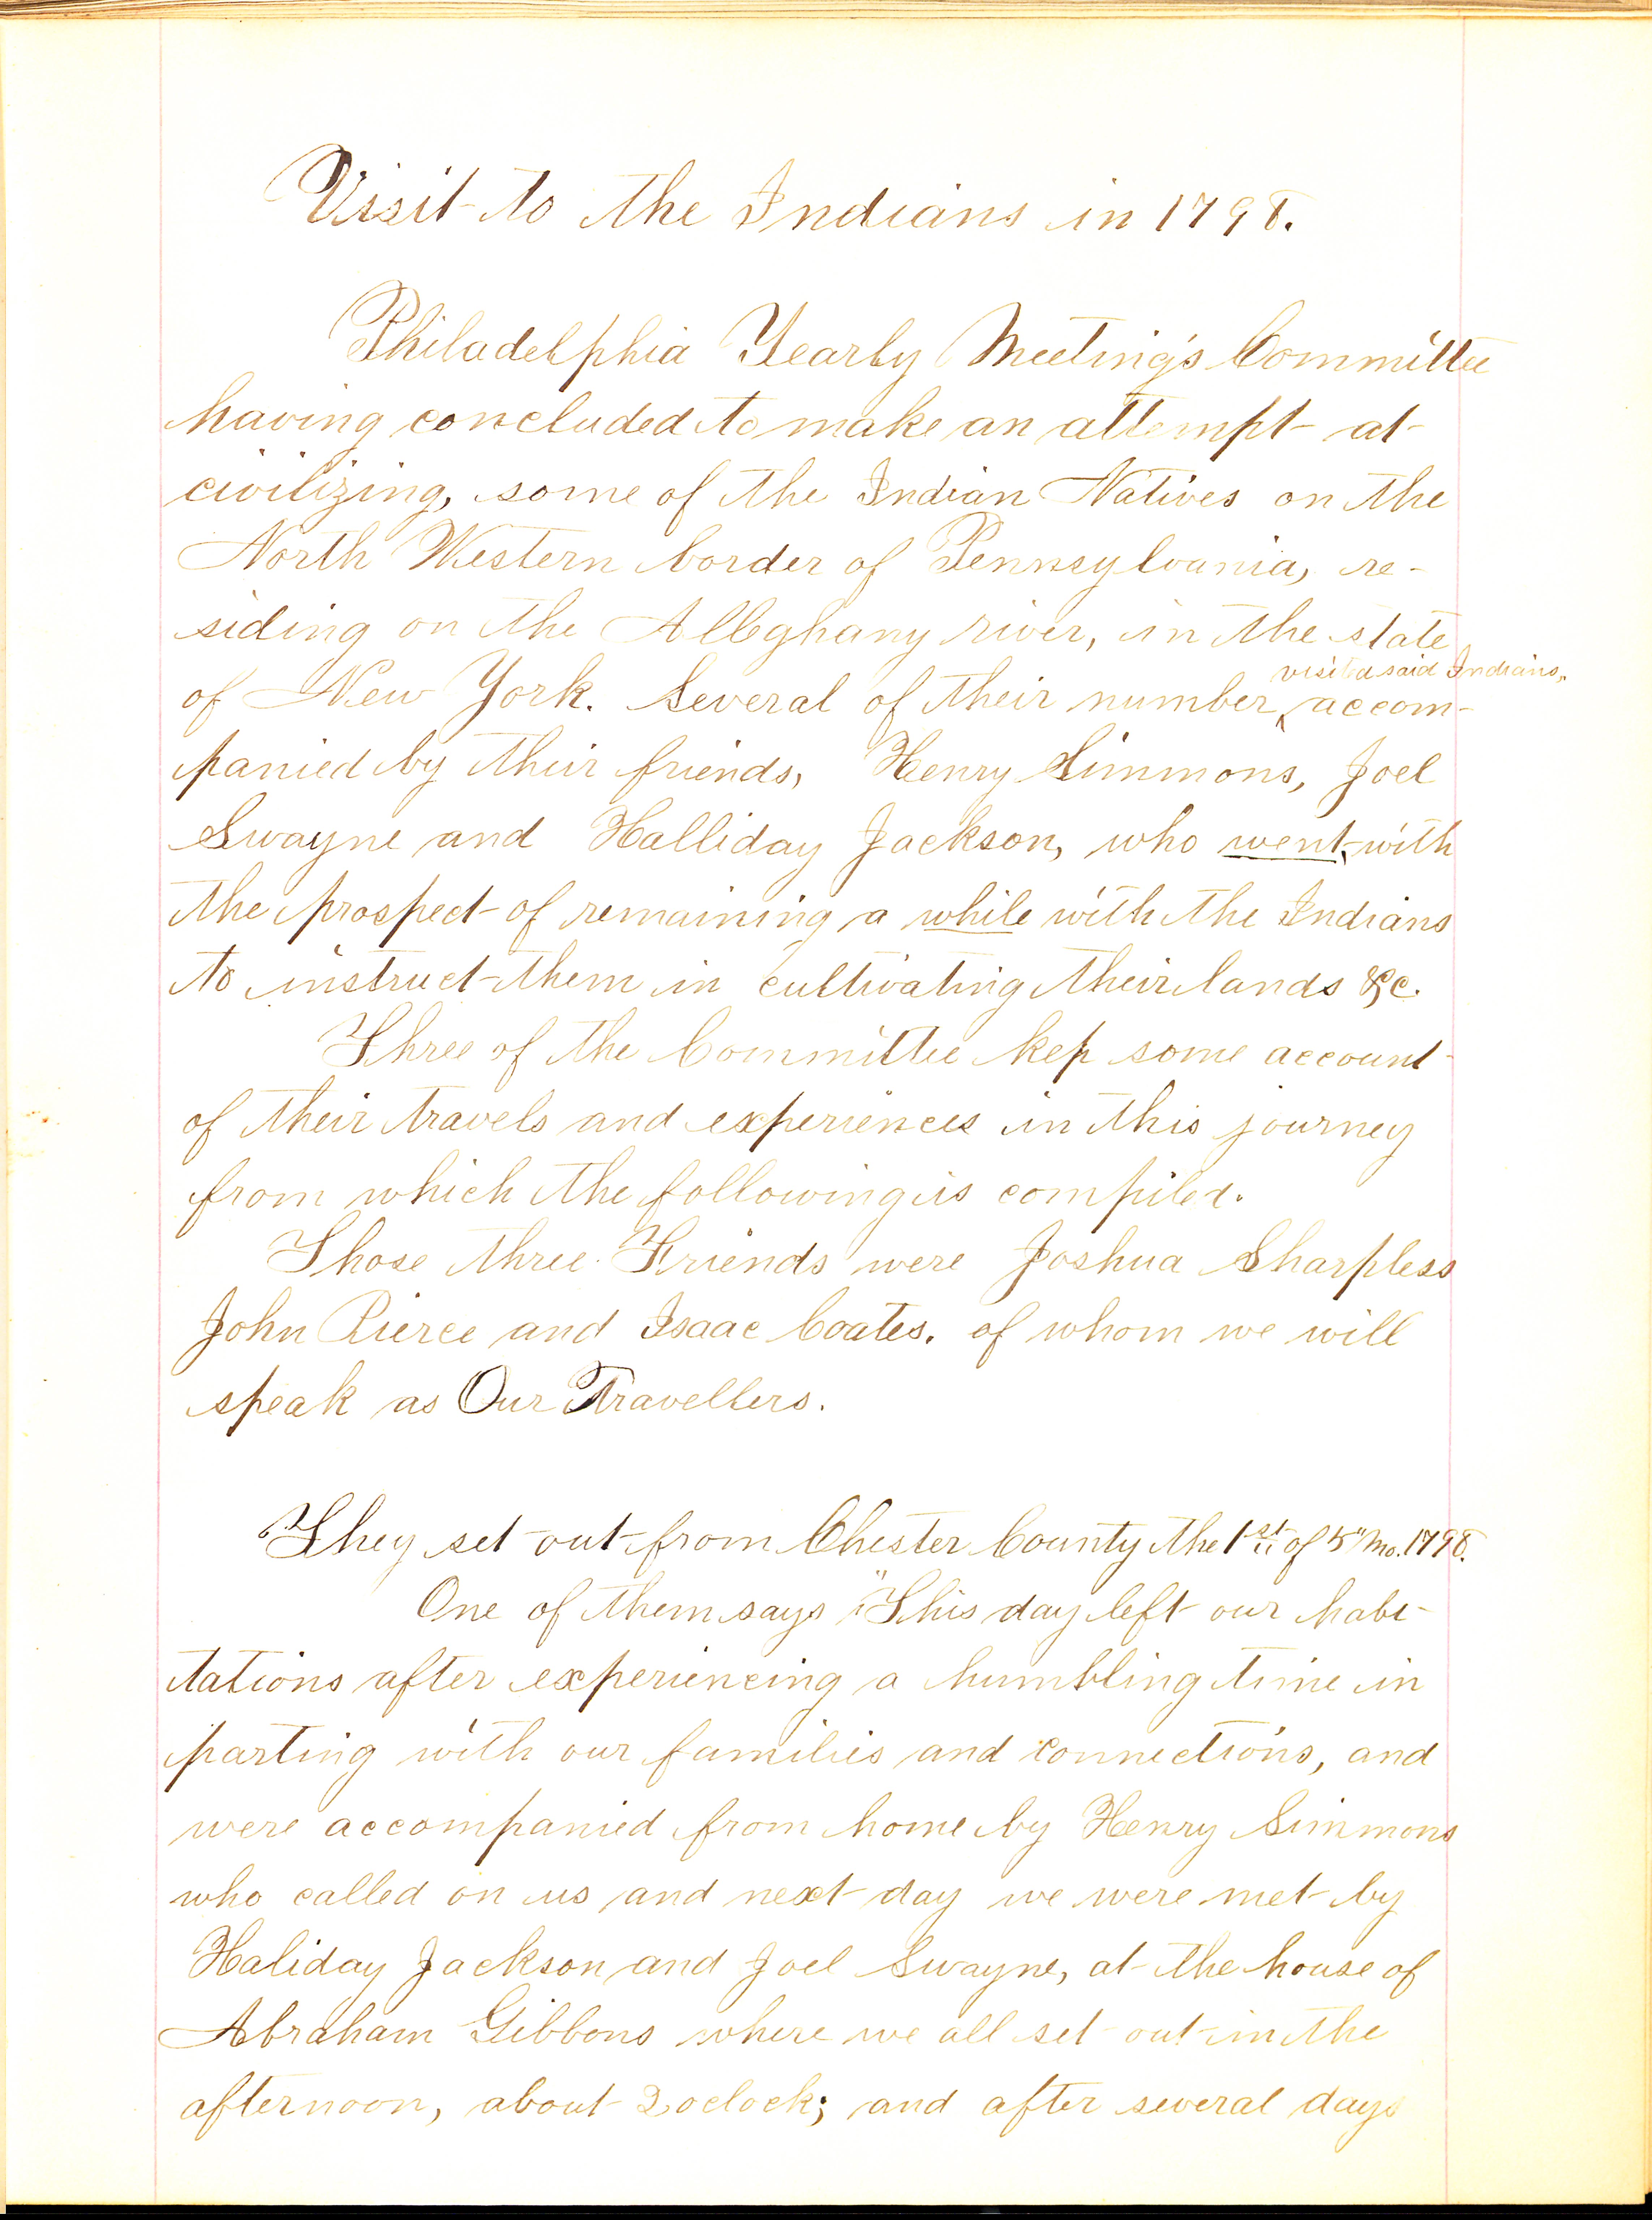 Visit to the Indians in 1798.
Philadelphia Yearly Meeting's Committee
having concluded to make an attempt at
civilizing, some of the Indian Natives on the
North Western border of Pennsylvania, re-
siding on the Alleghany river, in the state
visited said Indians,
of New York. Several of their number, accom-
panied by their friends, Henry Simmons, Joel
Swayne and Halliday Jackson, who went, with
the prospect of remaining a while with the Indians
to instruct them in cultivating their lands &c.
Three of the Committee kep some account
of their travels and experiences in this journey
from which the following is compiled.
Those three Friends were Joshua Sharpless
John Pierce and Isaac Coates. of whom we will
speak as Our Travellers.
They set out from Chester County the 1st of 5" Mo. 1798.
One of them says "This day left our habi-
tations after experiencing a humbling time in
parting with our families and connections, and
were accompanied from home by Henry Simmons
who called on us and next day we were met by
Haliday Jackson and Joel Swayne, at the house of
Abraham Gibbons where we all set out in the
afternoon, about 2 oclock; and after several days